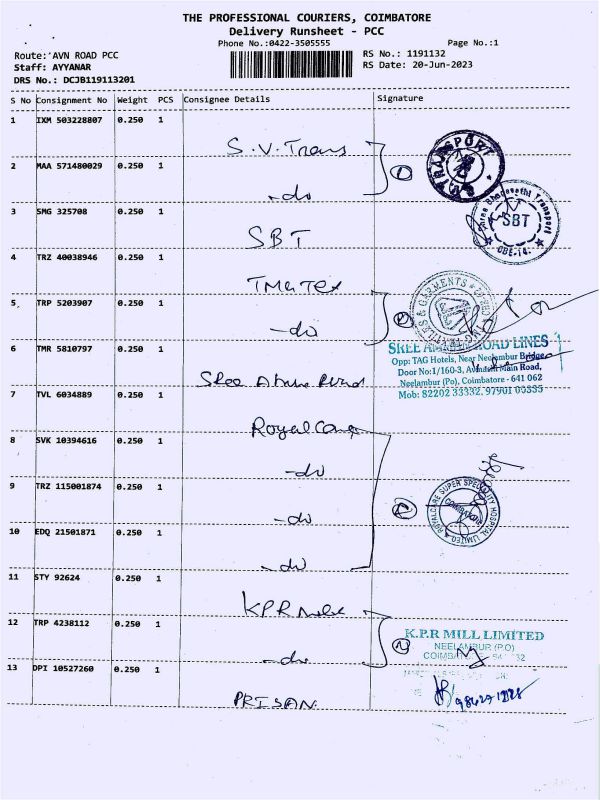 THE PROFESSIONAL COURIERS, COIMBATORE
Delivery Runsheet - PCC
Phone No.:0422-3505555 Page No.:1
Route: AVN ROAD PCC RS No.: 1191132
Staff: AYYANAR RS Date: 20-Jun-2023
DRS No.: DCJB119113201
S No Consignment No Weight PCS Consignee Details Signature
1 IXM 503228807 0.250 1
S.V. Trans
2 MAA 571480029 0.250 1
-do
3 SMG 325708 0.250 1
SBT
SBT
CBE-14.
4 TRZ 40038946 0.250 1
5 TRP 5203907 0.250 1
-do
6 TMR 5810797 0.250 1
ROAD LINES
Opp: TAG Hotels, Near Neelambur Bridge,
Door No:1/160-3, Avinashi Main Road,
Neelambur (Po), Coimbatore - 641 062
Mob: 82202 33332, 97901 05555
Sree
7 TVL 6034889 0.250 1
Royal Care
8 SVK 10394616 0.250 1
-do
9 TRZ 115001874 0.250 1
-do
ROYALCARE SUPER SPECIALITY HOSPITAL LIMITED
COIMBATORE
10 EDQ 21501871 0.250 1
-do
11 STY 92624 0.250 1
KPR
12 TRP 4238112 0.250 1
-do
K.P.R MILL LIMITED
NEELAMBUR (P.O)
13 DPI 10527260 0.250 1
PRISAN